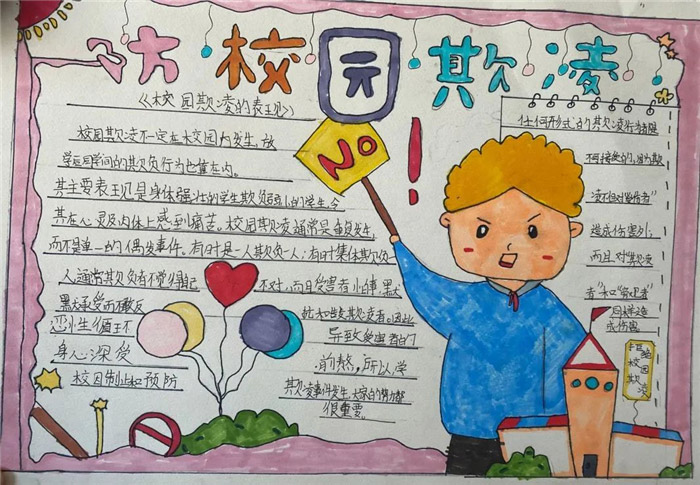 防校园欺凌
《校园欺凌的表现》
校园欺凌不一定在校园内发生，放
学后同学间的欺负行为也算在内。
其主要表现是身体强壮的学生欺负弱小的学生，令
其在心灵及肉体上感到痛苦。校园欺凌通常是重复发生，
而不是单一的偶发事件。有时是一人欺负一人；有时集体欺负一
人，通常欺负者不觉得自己
不对，而且受害者怕事，默
默承受而不敢反
恶性循环
导致受害者的
身心深受
煎熬，所以学
校园制止和预防
欺凌事件发生，大家的努力都
很重要。
NO!
任何形式的欺凌行为都是
不可接受的，因为欺
凌不但对受伤者
造成伤害外，
而且对“欺凌
者”和“旁观者”
同样造
成伤害
拒绝校园欺凌